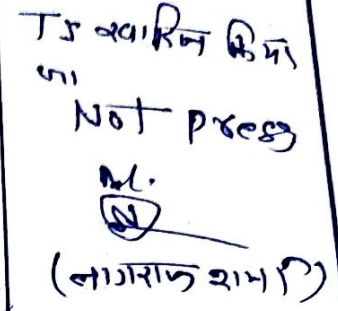 TI खारिज किया
जा
Not press
Ad.
(नागराज शर्मा)